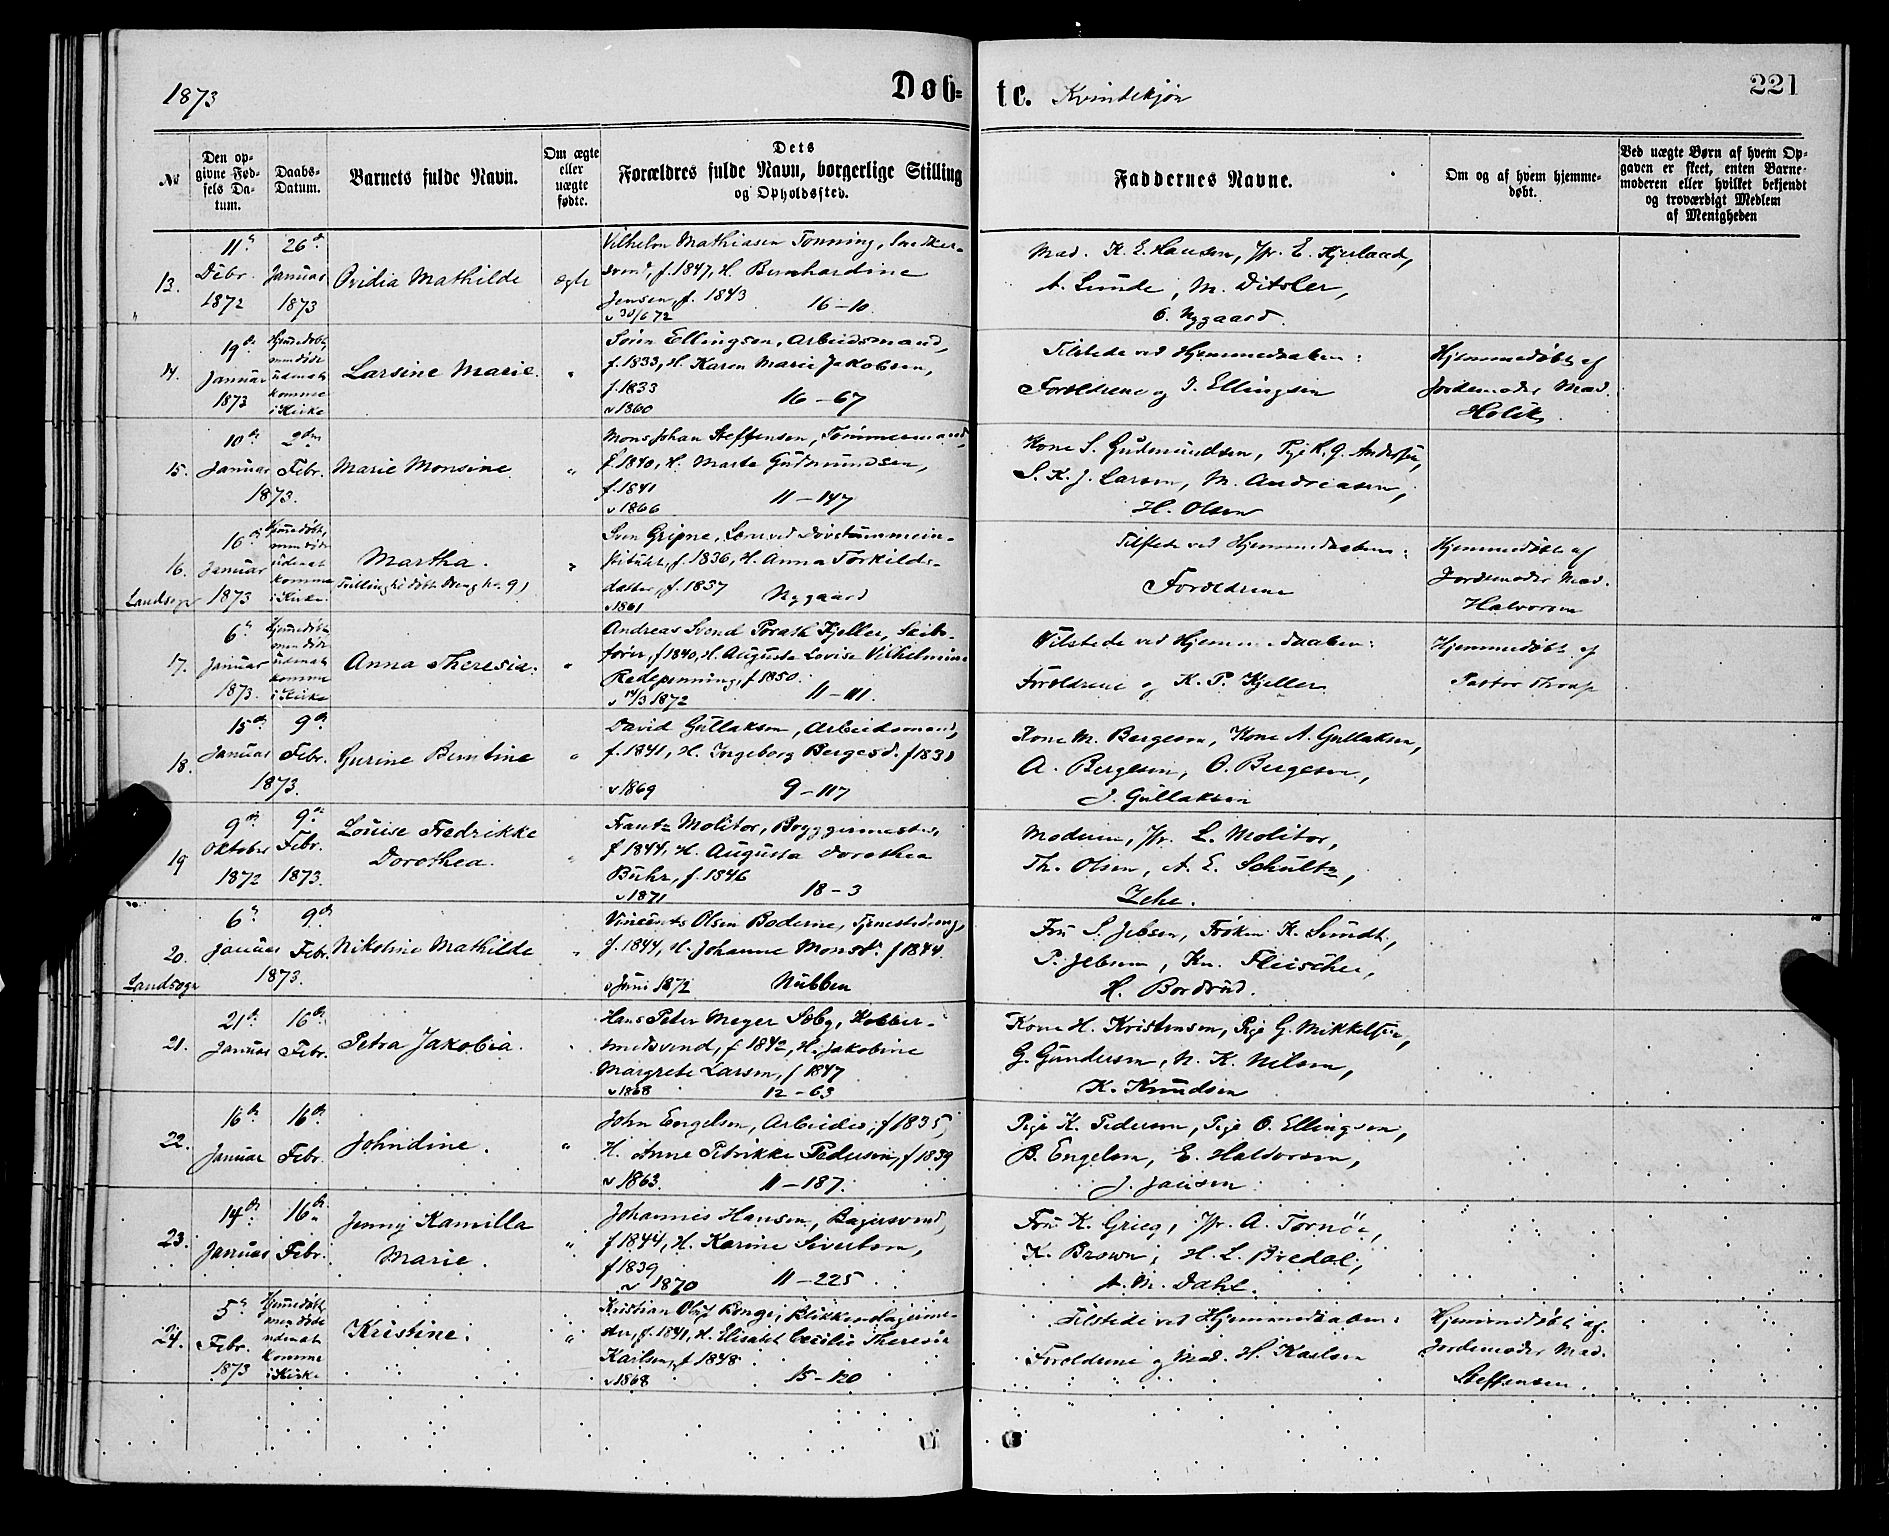 1873
Døb=
te.
Kvindekjøn
221
No
Den op-
givne Fød-
sels Da-
tum.
Daabs-
Datum.
Barnets fulde Navn.
Om ægte
eller
uægte
fødte.
Dets
Forældres fulde Navn, borgerlige Stilling
og Opholdssted.
Faddernes Navne.
Om og af hvem hjemme-
døbt.
Ved uægte Børn af hvem Op-
gaven er skeet, enten Barne-
moderen eller hvilket bekjendt
og troværdigt Medlem
af Menigheden
13.
11te Debr. 1872
26de Januar 1873
Ovidia Mathilde
ægte
Vilhelm Mathiasen Tonning, Snedker-
svend, f. 1847, H. Bernhardine
Jensen, f. 1843
v 30/6 72
16-10.
Mad. K. E. Hansen, Jfr. E. Kjerlaad,
A. Lunde, M. Ditsler,
O. Nygaard.
14.
19de Januar 1873
Hjemmedøbt, men døde uden at komme i Kirke
Larsine Marie.
"
Søren Ellingsen, Arbeidsmand,
f. 1833, H. Karen Marie Jakobsen,
f. 1833
v 1860
16-67
Tilstede ved Hjemmedaaben:
Forældrene og I. Ellingsen
Hjemmedøbt af
Jordemoder Mad.
Holck
15.
10de Januar
2den Febr.
1873.
Marie Monsine
"
Mons Johan Steffensen, Tømmermand,
f. 1840, H. Marta Gudmundsen,
f. 1841
v 1866
11-147
Kone S. Gudmundsen, Pige R. G. Andersen,
S. K. J. Larsen, M. Andreasen,
H. Olsen
16.
Landsogn
16de Januar 1873
Hjemmedøbt, men døde uden at komme i Kirke.
Martha.
Tvilling til døbt Dreng No. 9)
"
Sven Gripne, Lærer ved Døvstummein-
stitutet, f. 1836, H. Anna Torkilds-
datter, f. 1837
v 1861
Nygaard
Tilstede ved Hjemmedaaben:
Forældrene
Hjemmedøbt af
Jordemoder Mad.
Halvorsen
17.
6te Januar 1873.
Hjemmedøbt, men døde uden at komme i Kirke
Anna Theresia.
"
Andreas Svend Porath Kjeller, Skibs-
fører, f. 1840, H. Augusta Lovise Vilhelmine
Redepenning, f 1850.
v 14/3 1872
11-111.
Tilstede ved Hjemmedaaben:
Forældrene og K. P. Kjeller
Hjemmedøbt af
Pastor Thrap
18.
15de Januar
9de Febr.
1873.
Gurine Berntine
"
David Gullaksen, Arbeidsmand,
f. 1841, H. Ingeborg Bergesd. f 183
v 1869
9-117
Kone M. Bergesen, Kone A. Gullaksen,
A. Bergesen, O. Bergesen,
J. Gullaksen
19
9de Oktober 1872
9de Febr. 1873.
Louise Fredrikke
Dorothea.
"
Frantz Molitor, Bryggermester,
f 1844, H. Augusta Dorothea
Buhr, f. 1846
v 1871
18-3
Moderen, Jfr. L. Molitor,
Th. Olsen, A. E. Schultz,
Zehe.
20.
Landsogn
6te Januar
9de Febr.
1873.
Nikoline Mathilde
"
Vincents Olsen Boderne, Tjenestedreng,
f. 1844, H. Johanne Monsd. f 1844.
v Juni 1872
Nubben
Fru S. Jebsen, Frøken K. Sundt,
P. Jebsen, Kn. Fleischer,
H. Bordrud.
21.
21de Januar
16de Febr.
Petra Jakobia.
"
Hans Peter Meyer Søby, Kobber-
smedsvend, f 1842, H. Jakobine
Margrete Larsen, f 1847
v 1868
12-63
Kone H. Kristensen, Pige G. Mikkelsen,
G. Gundersen, N. K. Nilsen,
K. Knudsen
22.
16de Januar
16de Febr.
Johndine.
"
John Engelsen, Arbeider, f 1835,
H. Anne Petrikke Pedersen, f 1839
v 1863.
11-187.
Pige K. Pedersen, Pige O. Ellingsen,
B. Engelsen, E. Halvorsen,
J. Jansen
23.
14de Januar
16de Febr.
Jenny Kamilla
Marie.
"
Johannes Hansen, Bagersvend,
f 1844, H. Karine Sivertsen,
f 1839
v 1870
11-225
Fru K. Grieg, Jfr. A. Tornöe,
K. Brown, H. L. Bredal,
A. M. Dahl.
24.
5te Febr. 1873
Hjemmedøbt, men døde uden at komme i Kirke
Kristine.
"
Kristian Oluf Bonge, Blikkenslagerme-
ster, f. 1841, H. Elisabet Cecilie Theresia
Karlsen, f 1848
v 1868
15-120
Tilstede ved Hjemmedaaben:
Forældrene og Mad. H. Karlsen
Hjemmedøbt af
Jordemoder Mad.
Steffensen.